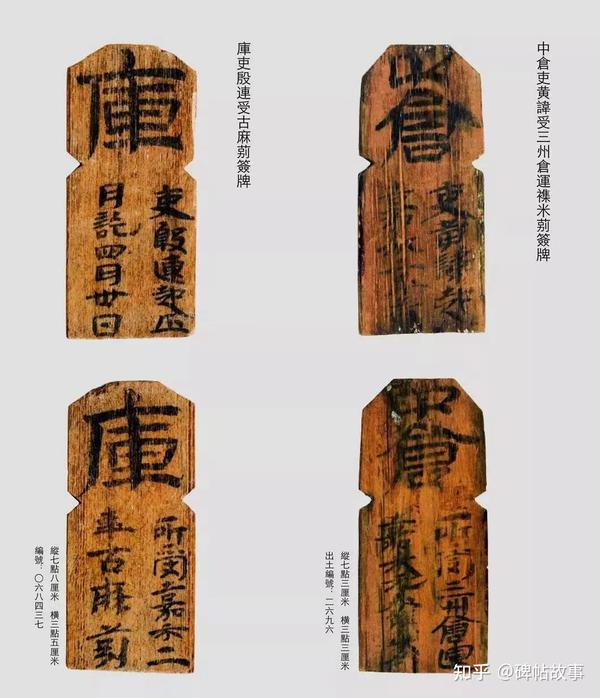 中倉吏黄諱受三州倉運襍米莂簽牌
中倉
吏黄諱
中倉
所受三州倉運
縱七點三厘米 橫三點三厘米
出土編號：二六九六
庫吏殷連受古麻莂簽牌
庫
吏殷連起正
月訖四月卅日
庫
所受嘉禾二
年古麻莂
縱七點八厘米 橫三點五厘米
編號：〇六八四三七
知乎 @碑帖故事